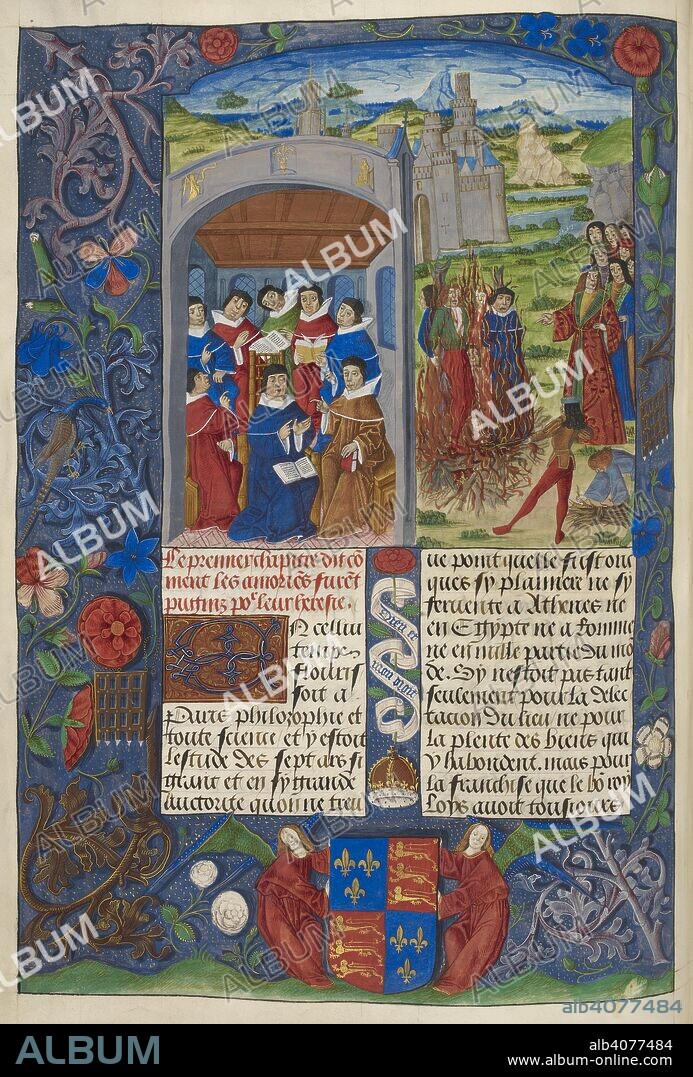 Le premier chapitre dit co
ment les amories furet
puttinz po' leur heresie.
En cellui
temps
flouris
soit a
Paris philozophie et
toute science et y estoit
lestude des sept ars si
grant et en sy grande
auctorite qu on ne treu
ue point quelle fust onc
ques sy planiere ne sy
feruente a Athenes ne
en Egypte ne a Romme
ne en nulle partie du mo
de. Sy nestoit pas tant
seulement pour la delec
tacion du lieu ne pour
la plente des biens qui
y habondent. mais pour
la franchise que le bo roy
Loys auoit tousiours
Dieu et
mon droit
ALBUM
alb4077484
ALBUM
alb4077484
www.album-online.com